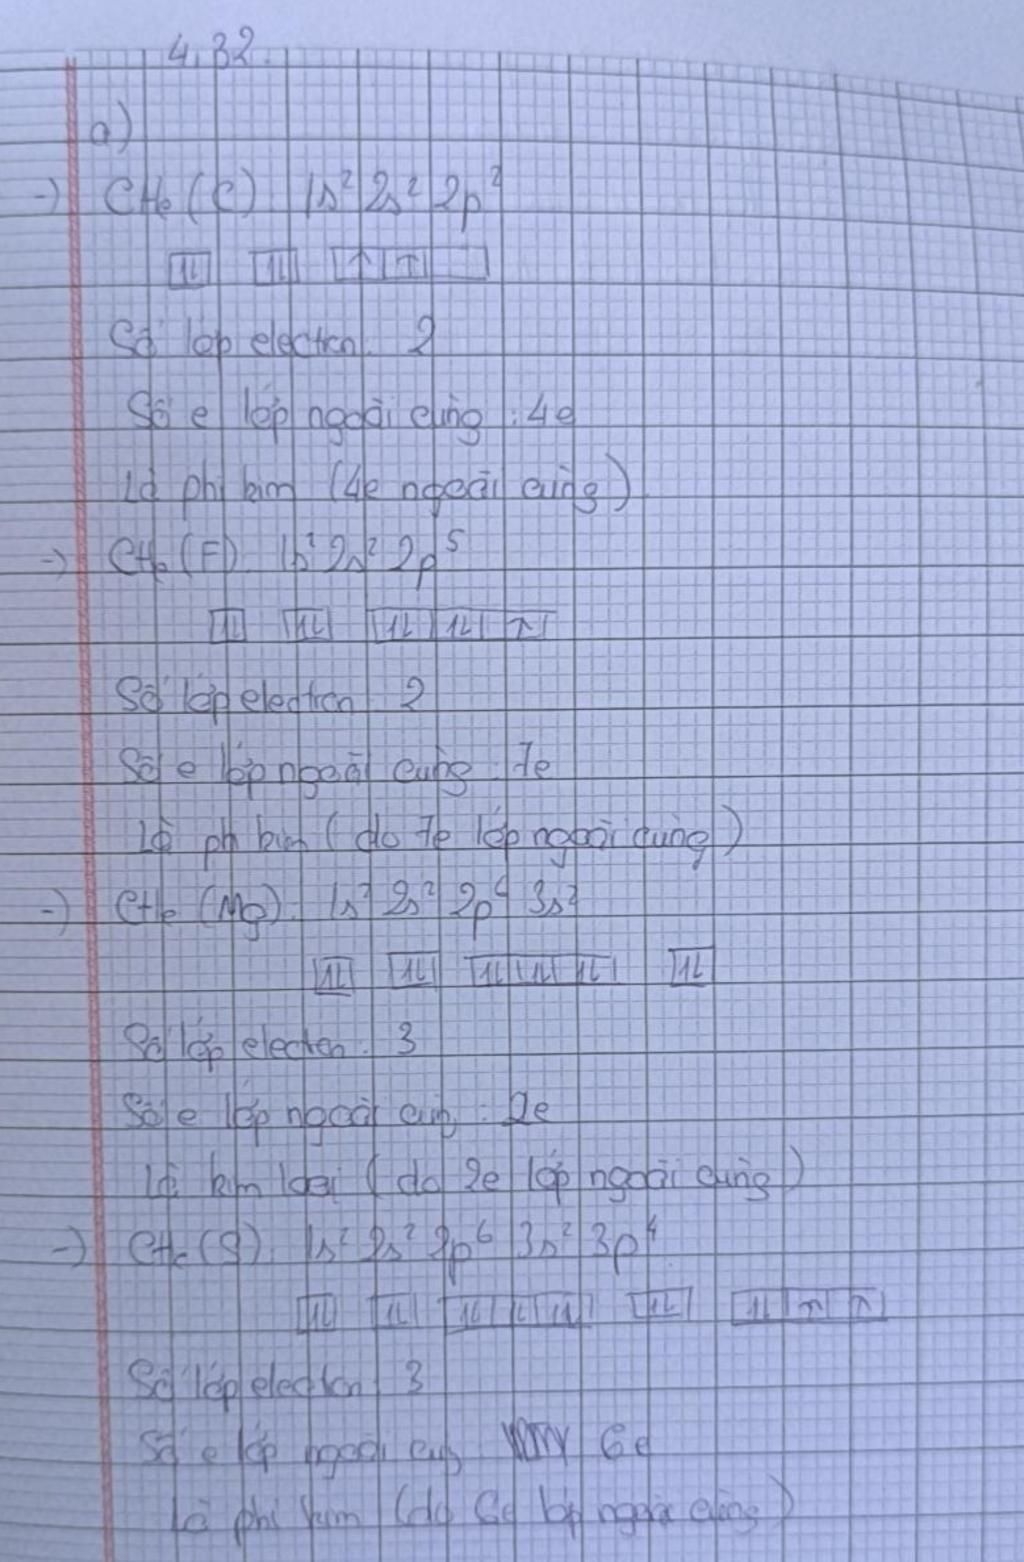 4.32.
a)
→) CHe (C) 1s² 2s² 2p²
↑↓ ↑↓ ↑ ↑
Số lớp electron. 2
Số e lớp ngoài cùng : 4e
Là phi kim (4e ngoài cùng)
→) CHe (F) 1s² 2s² 2p⁵
↑↓ ↑↓ ↑↓ ↑↓ ↑
Số lớp electron 2
Số e lớp ngoài cùng : 7e
Là phi kim (do 7e lớp ngoài cùng)
→) CHe (Mg). 1s² 2s² 2p⁶ 3s²
↑↓ ↑↓ ↑↓ ↑↓ ↑↓ ↑↓
Số lớp electron. 3
Số e lớp ngoài cùng : 2e
Là kim loại (do 2e lớp ngoài cùng)
→) CHe (S). 1s² 2s² 2p⁶ 3s² 3p⁴
↑↓ ↑↓ ↑↓ ↑↓ ↑↓ ↑↓ ↑↓ ↑ ↑
Số lớp electron 3
Số e lớp ngoài cùng 6e
Là phi kim (do 6e lớp ngoài cùng)